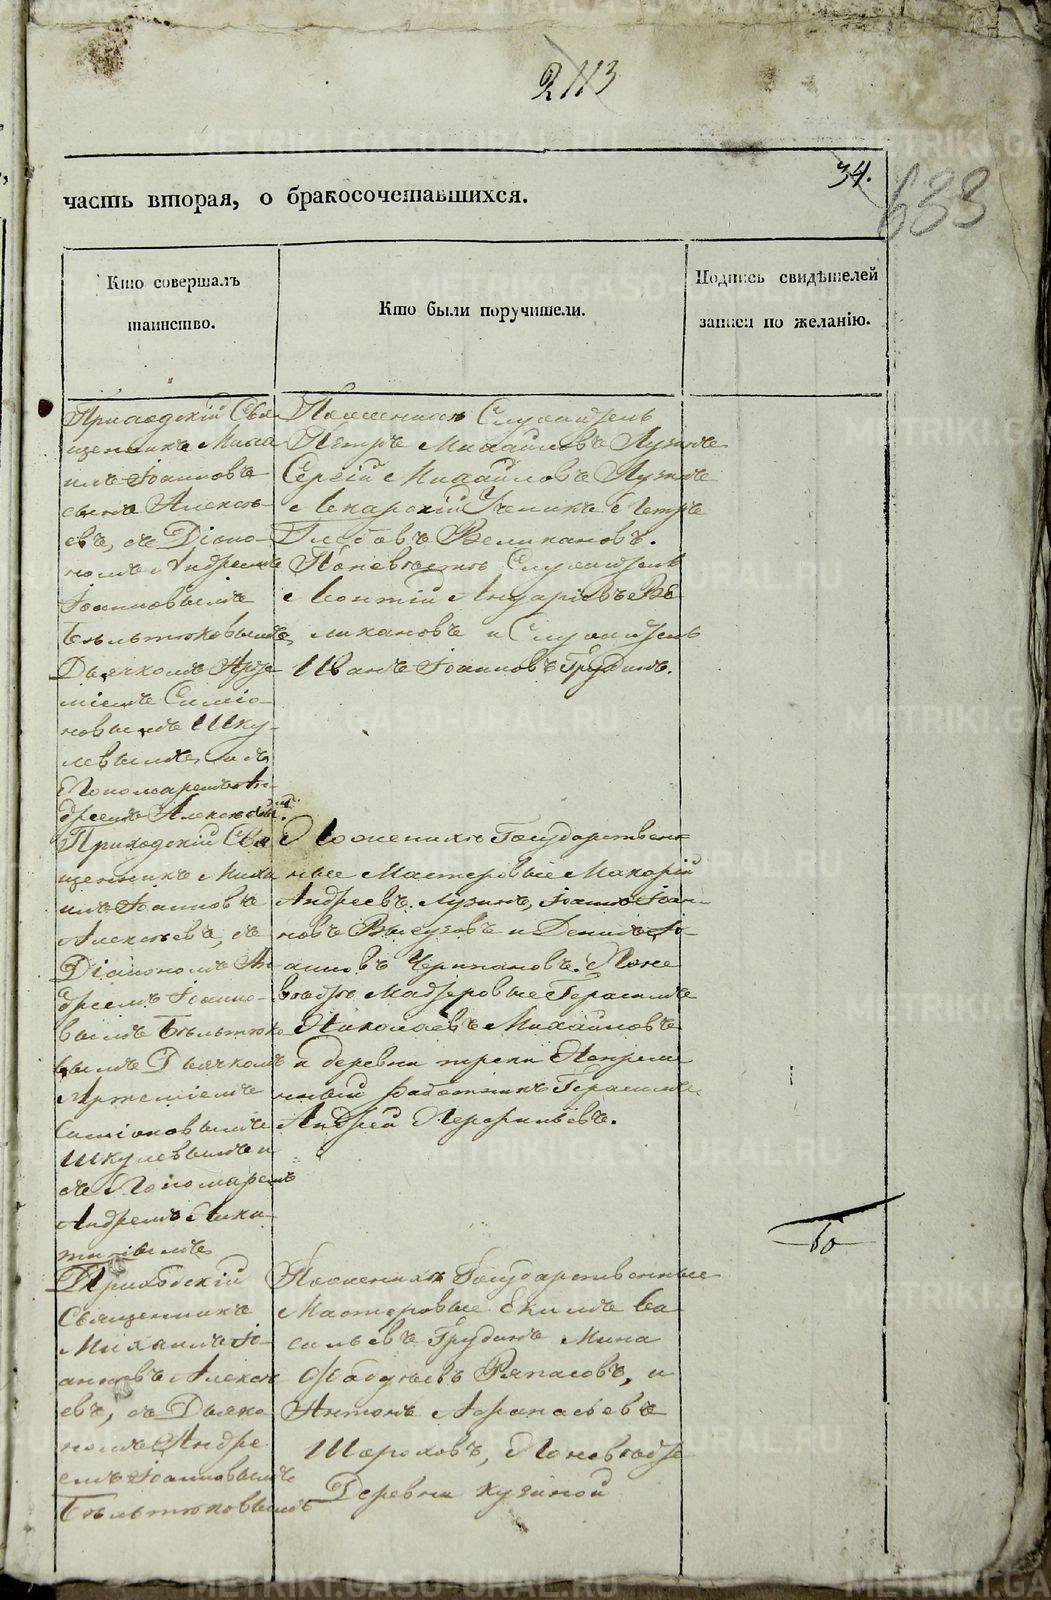 2113
34.
633
часть вторая, о бракосочетавшихся.
Кто совершалъ
таинство.
Кто были поручители.
Подпись свидѣтелей
записи по желанію.
Приходскій Свя-
щенникъ Миха
илъ Іоанновъ
сынъ Алексѣ-
евъ, съ Діако-
номъ Андреемъ
Іоанновымъ
Бѣльтюковымъ,
Дьячкомъ Арте
міемъ Симео-
новымъ Шку-
левымъ, и съ
Пономаремъ Ан-
дреемъ
По женихѣ Служитель
Петръ Михайловъ Лузинъ
Сергій Михайловъ Лузинъ
Лекарскій Ученикъ Петръ
Глебовъ Великановъ.
По невѣстѣ Служитель
Леонтій Ве
ликановъ и Служитель
Иванъ Іоанновъ Грудинъ.
Приходскій Свя
щенникъ Миха
илъ Іоанновъ
Алексѣевъ, съ
Діакономъ Ан
дреемъ Іоанно-
вымъ Бѣльтюко
вымъ Дьячкомъ
Артеміемъ
Симіоновымъ
Шкулевымъ и
съ Пономаремъ
Андреемъ
По женихѣ Государствен
ные Мастеровые Макарій
Андреевъ Лузинъ, Іоаннъ Іоан-
новъ и Денисъ Іо-
анновъ Черепановъ. По не
вѣстѣ Мастеровые Герасимъ
Николаевъ Михайловъ
и деревни Непреме
нный работникъ Герасимъ
Андрей Перфильевъ.
60
Приходскій
Священникъ
Михаилъ Іо-
анновъ Алексѣ
евъ, съ Дьяко
номъ Андре
емъ Іоанновымъ
Бѣльтюковымъ
По женихѣ Государственные
Мастеровые Екимъ Ва
сильевъ Грудинъ Мина
Фадѣевъ Ряпасовъ, и
Антонъ Афанасьевъ
Шороховъ, По невѣстѣ
Деревни Кузиной